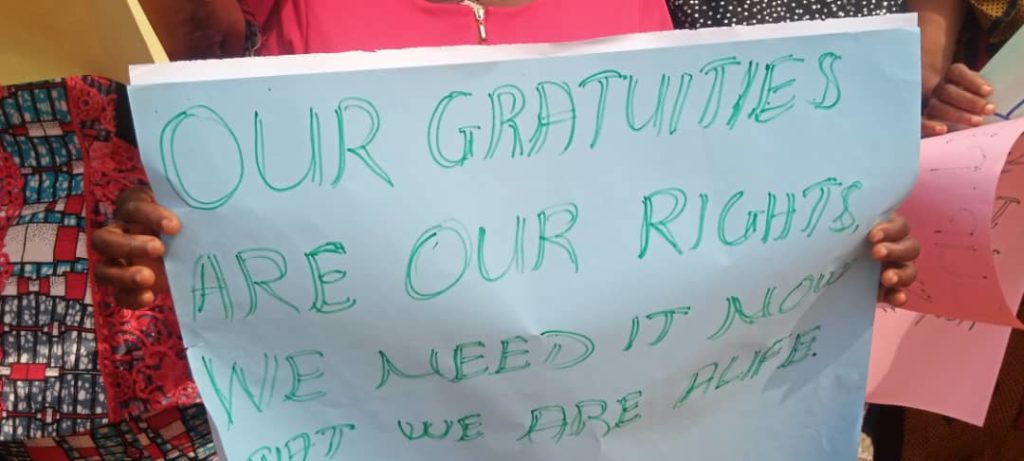 OUR GRATUITIES
ARE OUR RIGHTS,
WE NEED IT NOW
WE ARE ALIFE.